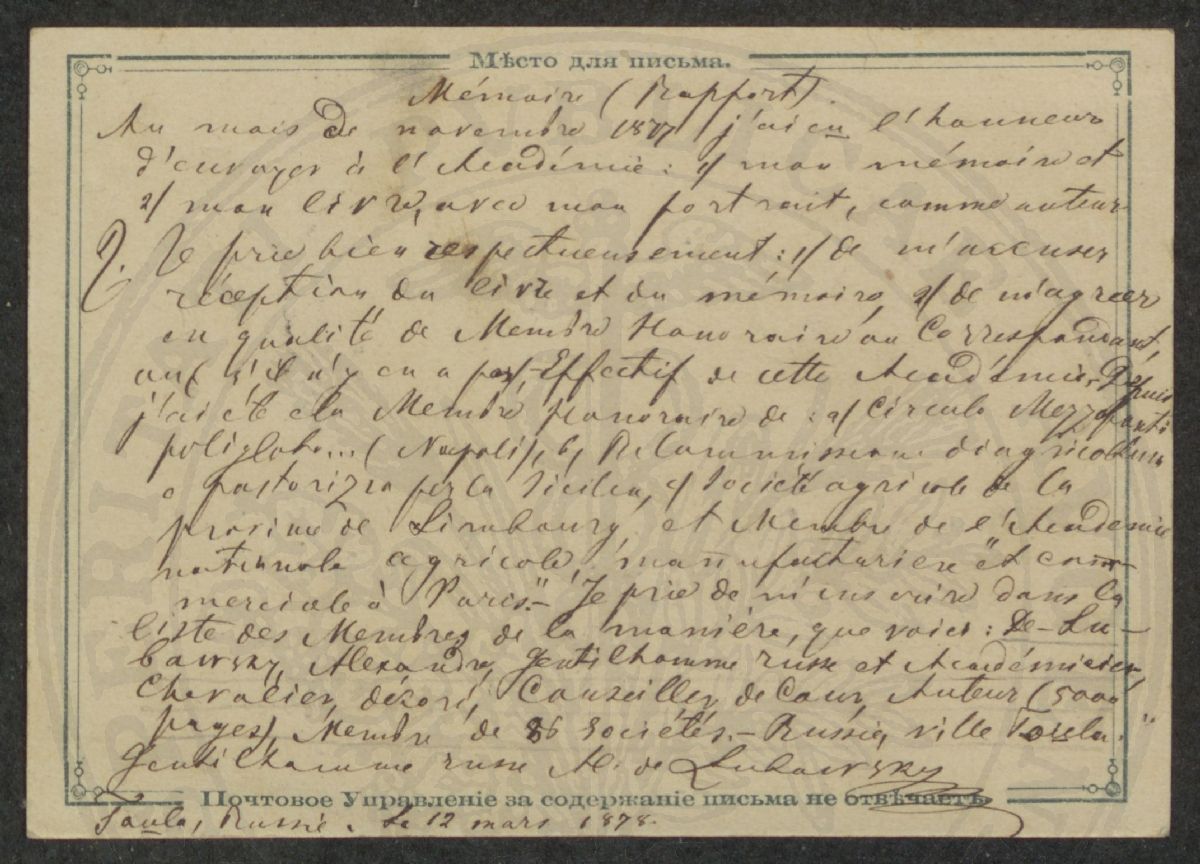 Мѣсто для письма.
Mémoire (Rapport).
Au mois de novembre 1877 j'ai eu l'honneur
d'envoyer à l'Académie: 1/ mon mémoire et
2/ mon livre, avec mon portrait, comme auteur
Je prie bien respectueusement: 1/ de m'accuser
réception du livre et du mémoire, 2/ de m'agréer
en qualité de Membre Honoraire ou Correspondant,
ou, s'il n'y en a pas, Effectif de cette Académie. Depuis
j'ai été élu Membre Honoraire de: a/ Circulo Mezzofanti
poligloto... (Napoli), b, R. Commissione di agricoltura
e pastorizia per la Sicilia, c/ Société agricole de la
province de Limbourg, et Membre de l'Académie
nationale agricole, manufacturière "et com-
merciale à Paris."- Je prie de m'inscrire dans la
liste des Membres de la manière, que voici: De-Lu-
bawsky, Alexandre, gentilhomme russe et Académicien,
Chevalier, décoré, Conseiller de Cour, Auteur (5000
pages), Membre de 86 Sociétés.- Russie, ville Toula."
Gentilhomme russe A. de Lubawsky
Почтовое Управленіе за содержаніе письма не отвѣчаетъ.
Toula, Russie. Le 12 mars 1878.